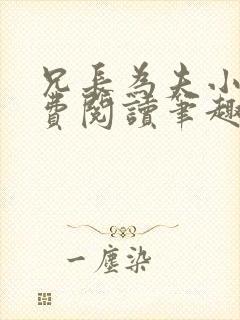 兄長為夫小
費閱讀筆趣
一塵染